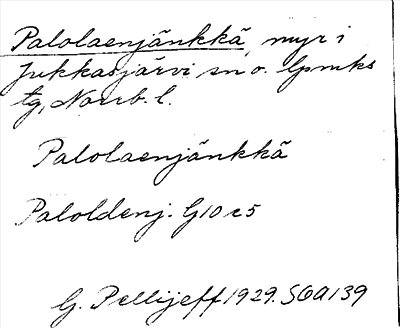 Palolaenjänkkä, myr i
Jukkasjärvi sn o. lpmks
tg, Norrb. l.
Palolaenjänkkä
Paloldenj. G10 c5
G. Pellijeff 1929. SOA 139